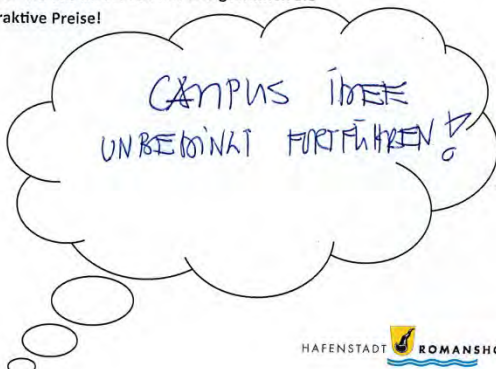 raktive Preise!
CAMPUS IDEE
UNBEDINGT FORTFÜHREN!
HAFENSTADT ROMANSHO